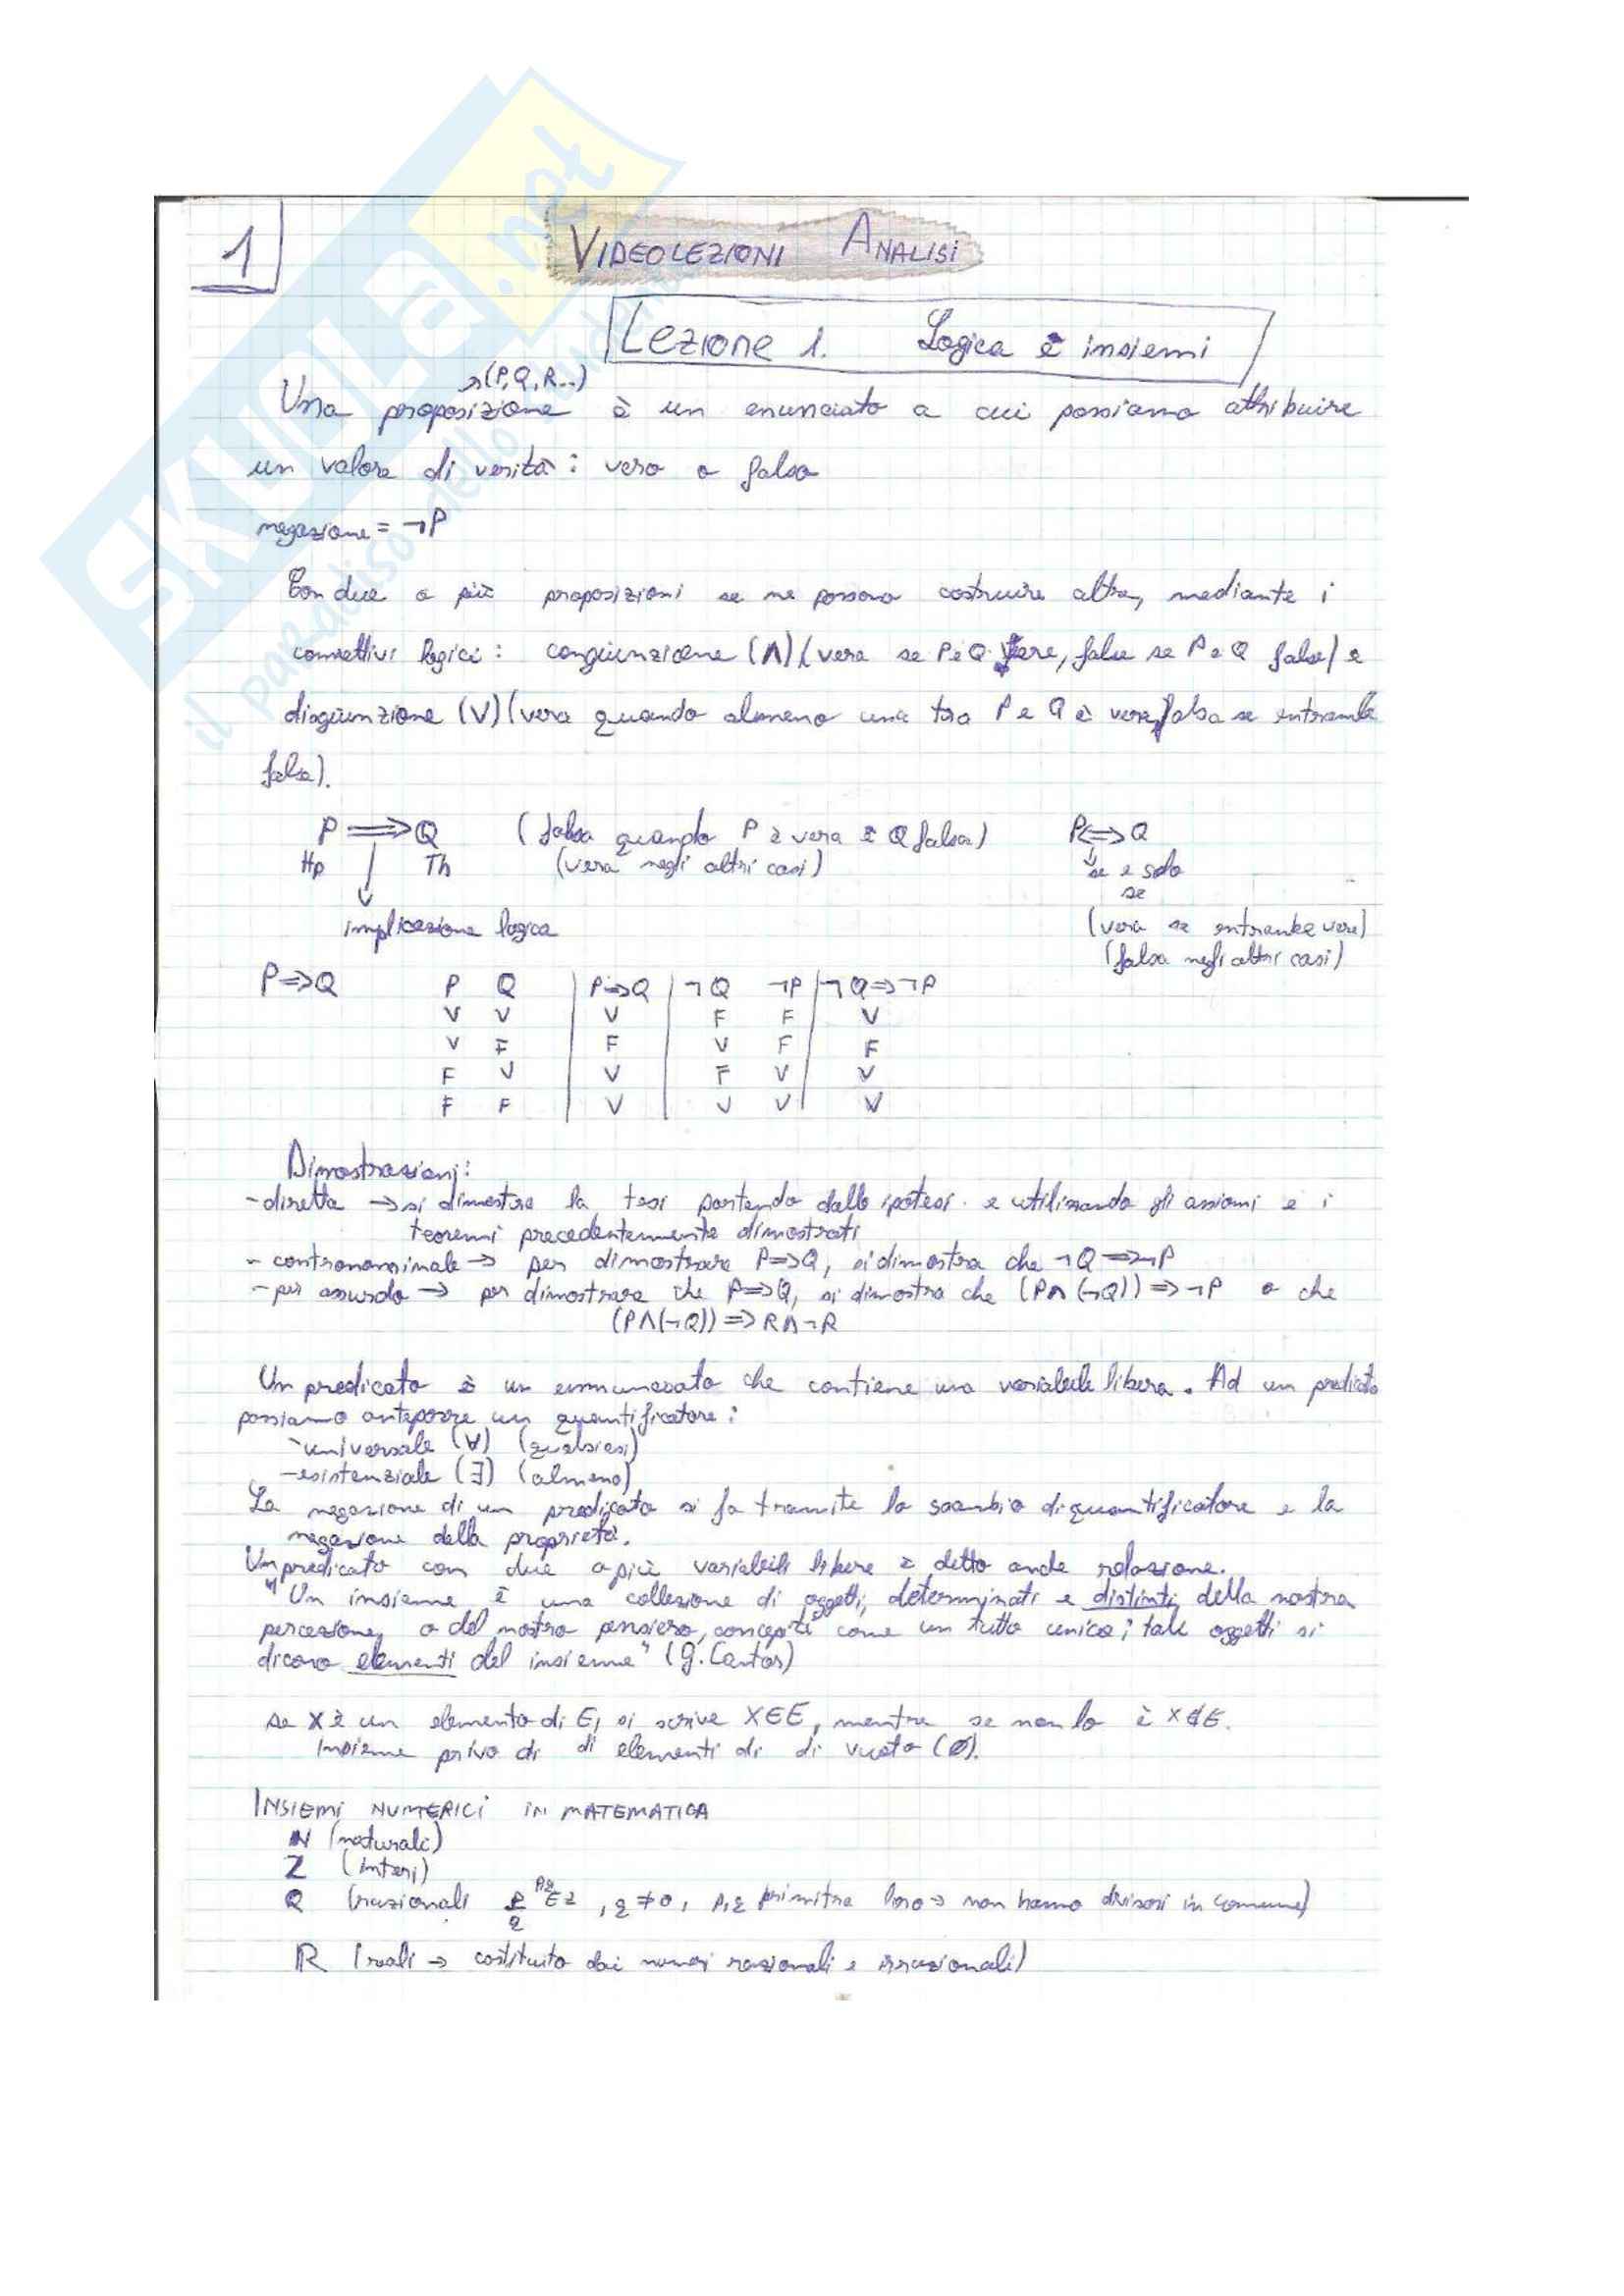 1
VIDEOLEZIONI ANALISI
Lezione 1. Logica e insiemi
→(P,Q,R..)
Una proposizione è un enunciato a cui possiamo attribuire
un valore di verità: vero o falso
negazione = ¬P
Con due o più proposizioni se ne possono costruire altre, mediante i
connettivi logici: congiunzione (∧) (vera se P e Q vere, false se P e Q false) e
disgiunzione (∨) (vera quando almeno una tra P e Q è vera, falsa se entrambe
false).
P ⟹ Q (falsa quando P è vera e Q falsa) P⟺Q
Hp Th (vera negli altri casi) se e solo
se
implicazione logica (vera se entrambe vere)
(falsa negli altri casi)
P⇒Q P Q P⇒Q ¬Q ¬P ¬Q⇒¬P
V V V F F V
V F F V F F
F V V F V V
F F V V V V
Dimostrazioni:
-diretta → si dimostra la tesi partendo dalle ipotesi e utilizzando gli assiomi e i
teoremi precedentemente dimostrati
- contronominale → per dimostrare P⇒Q, si dimostra che ¬Q⇒¬P
- per assurdo → per dimostrare che P⇒Q, si dimostra che (P∧(¬Q))⇒¬P o che
(P∧(¬Q))⇒R∧¬R
Un predicato è un che contiene una variabile libera. Ad un predicato
possiamo anteporre un quantificatore:
-universale (∀) (qualsiasi)
-esistenziale (∃) (almeno)
La negazione di un predicato si fa tramite lo scambio di quantificatore e la
negazione della proprietà.
Un predicato con due o più variabili libere è detto anche relazione.
"Un insieme è una collezione di oggetti, determinati e distinti della nostra
percezione, o del nostro pensiero, concepiti come un tutto unico; tali oggetti si
dicono elementi del insieme" (G. Cantor)
se x è un elemento di E, si scrive X∈E, mentre se non lo è X∉E.
Insieme privo di di elementi di di vuoto (∅).
INSIEMI NUMERICI IN MATEMATICA
N (naturali)
Z (interi)
Q (razionali p/q p,q∈Z, q≠0, p,q primi tra loro→ non hanno divisori in comune)
R (reali → costituito dai numeri razionali e irrazionali)
SKUOLA.net